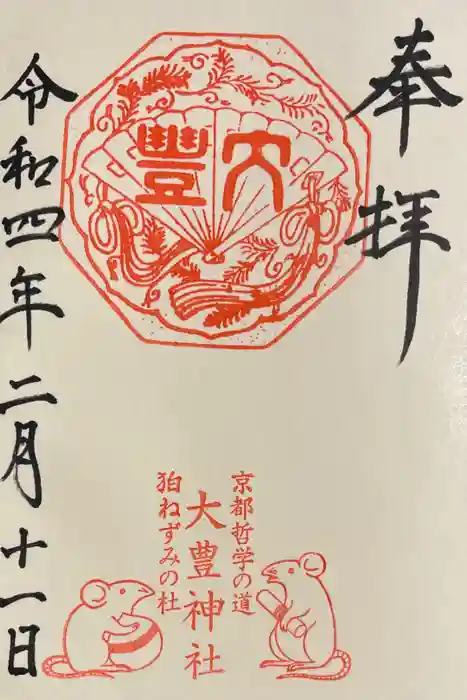 奉拝
大豐
京都哲学の道
大豊神社
狛ねずみの社
令和四年二月十一日